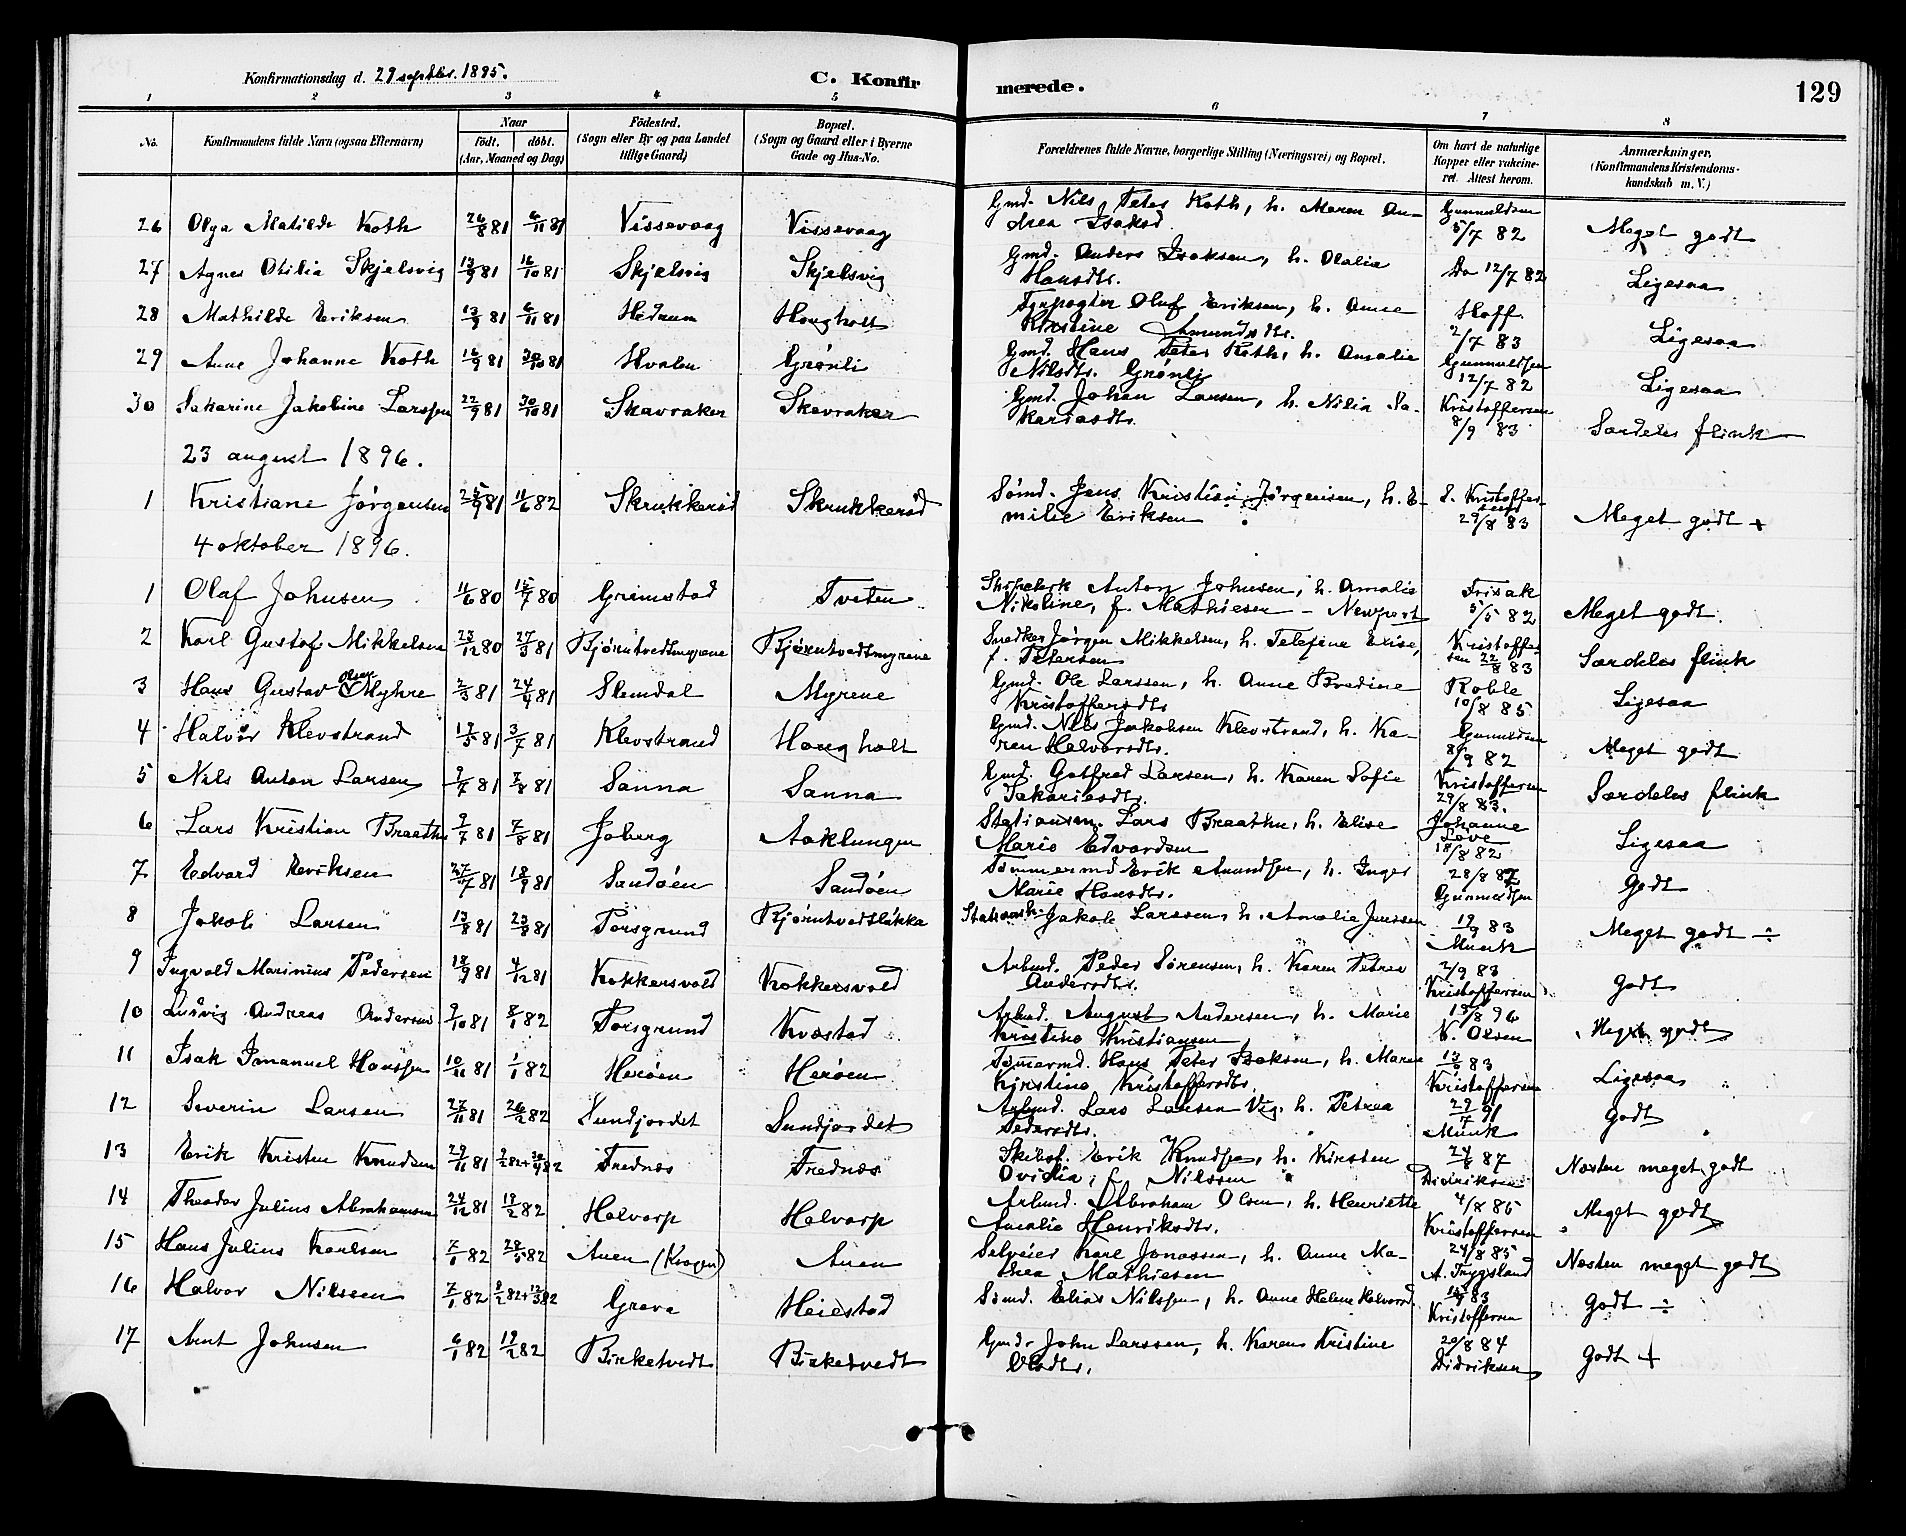 Konfirmationsdag d. 29 septbr. 1895.
C. Konfirmerede.
129
1 2 3 4 5 6 7 8
No. Konfirmandens fulde Navn (ogsaa Efternavn) Naar födt. döbt. (Aar, Maaned og Dag) Födested. (Sogn eller By og paa Landet tillige Gaard) Bopæl. (Sogn og Gaard eller i Byerne Gade og Hus-No. Forældrenes fulde Navne, borgerlige Stilling (Næringsvei) og Bopæl. Om havt de naturlige Kopper eller vakcineret. Attest herom. Anmærkninger. (Konfirmandens Kristendomskundskab m. V.)
26 Olga Matilde Roth 26/8 81 6/11 81 Vissevaag Vissevaag Gmd. Nils Peter Roth, h. Maren Andrea Isaksd. Gunnuldsen 5/7 82 Meget godt
27 Agnes Otilia Skjelsvig 13/9 81 16/10 81 Skjelsvig Skjelsvig Gmd. Anders Isaksen, h. Olalia Hansdtr. Do 12/7 82 Ligesaa
28 Mathilde Eriksen 13/9 81 6/11 81 Hedrum Hougholt Fyrvogter Oluf Eriksen, h. Anne Kristine Amundsdtr. Hoff 2/7 83 Ligesaa
29 Anne Johanne Roth 16/9 81 30/10 81 Hvalen Grønli Gmd. Hans Peter Roth, h. Amalie Nilsdtr. Grønli Gunnuldsen 12/7 82 Ligesaa
30 Sakarine Jakobine Larssen 22/9 81 30/10 81 Skavraker Skavraker Gmd. Johan Larsen, h. Nilia Sakariasdtr. Kristoffersen 8/9 83 Særdeles flink
23 august 1896.
1 Kristiane Jörgensen 25/9 81 11/6 82 Skrukkeröd Skrukkeröd Sömd. Jens Kristian Jörgensen, h. Emilie Eriksen S. Kristoffersen 29/8 83 Meget godt +
4 oktober 1896.
1 Olaf Johnsen 11/6 80 15/7 80 Grimstad Tveten Anton Johnsen, h. Amalie Nikoline, f. Mathiesen – Newport Frisak 5/5 82 Meget godt
2 Karl Gustaf Mikkelsen 23/12 80 27/3 81 Bjørntvedtmyrene Bjørntvedtmyrene Snedker Jörgen Mikkelsen, h. Telefine Elise, f. Petersen Kristoffersen 22/8 83 Særdeles flink
3 Hans Gustav Olsen Myhre 2/3 81 24/4 81 Slemdal Myrene Gmd. Ole Larssen, h. Anne Bredine Kristoffersdtr. Roble 10/8 85 Ligesaa
4 Halvor Klevstrand 13/5 81 3/7 81 Klevstrand Houghalt Gmd. Nils Jakobsen Klevstrand, h. Karen Halvorsdtr. Gunnuldsen 8/9 82 Meget godt
5 Nils Anton Larsen 9/7 81 7/8 81 Sanna Sanna Gmd. Gotfred Larsen, h. Karen Sofie Sakariasdtr. Kristoffersen 29/8 83. Særdeles flink
6 Lars Kristian Braathe 9/7 81 7/8 81 Joberg Aaklungen Stationsm. Lars Braathe, h. Elise Marie Edvardsen Johanne Love 18/8 82 Ligesaa
7 Edvard Eriksen 27/7 81 18/9 81 Sandøen Sandøen Tømmermd Erik Amundsen, h. Inger Marie Hansdtr. 28/8 82 Gunnuldsen Godt
8 Jakob Larsen 13/8 81 23/8 81 Porsgrund Bjørntvedtløkka Jakob Larssen, h. Amalie Jenssen 19/9 83 Munk Meget godt ÷
9 Ingvald Marinius Pedersen 18/9 81 4/12 81 Kokkersvold Kokkersvold Arbmd. Peder Sörensen, h. Karen Petrea Andersdtr. 2/9 83 Kristoffersen Godt
10 Ludvig Andreas Andersen 9/10 81 8/1 82 Porsgrund Kvæstad Arbmd. August Andersen, h. Marie Kristine Kristiansen 19/8 96 K. Olsen Meget godt
11 Isak Imanuel Hanssen 10/11 81 1/1 82 Herøen Herøen Tømmermd. Hans Peter Isaksen, h. Maren Kirstine Kristoffersdtr. 83 Kristoffersen Ligesaa
12 Severin Larsen 27/11 81 26/2 82 Sundjordet Sundjordet Arbmd. Lars Larsen Vig. h. Petrea Pedersdtr. 29/7 91 Munk Godt
13 Erik Kristen Knudsen 29/11 81 Frednæs Frednæs Skibsf. Erik Knudsen, h. Kirsten Ovidia, f. Nilssen 24/8 87 Didriksen Næsten meget godt
14 Theodor Julius Abrahamsen 24/12 81 19/2 82 Halvarp Halvarp Arbmd. Abraham Olsen, h. Henriette Amalie Henriksdtr. 4/8 85 Kristoffersen Meget godt
15 Hans Julius Karlsen 7/1 82 28/5 82 Auen (Kragerø) Auen Selveier Karl Jonassen, h. Anne Mathea Mathiesen 24/8 85 A. Trygsland Næsten meget godt
16 Halvor Nilssen 7/1 82 Grava Heiestad Sømd. Elias Nilssen, h. Anne Helene Halvorsd. 83 Kristoffersen Godt ÷
17 Arnt Johnsen 6/1 82 19/2 82 Birketvedt Birketvedt Gmd. John Larssen, h. Karen Kristine Olsdtr. 20/8 84 Didriksen Godt +